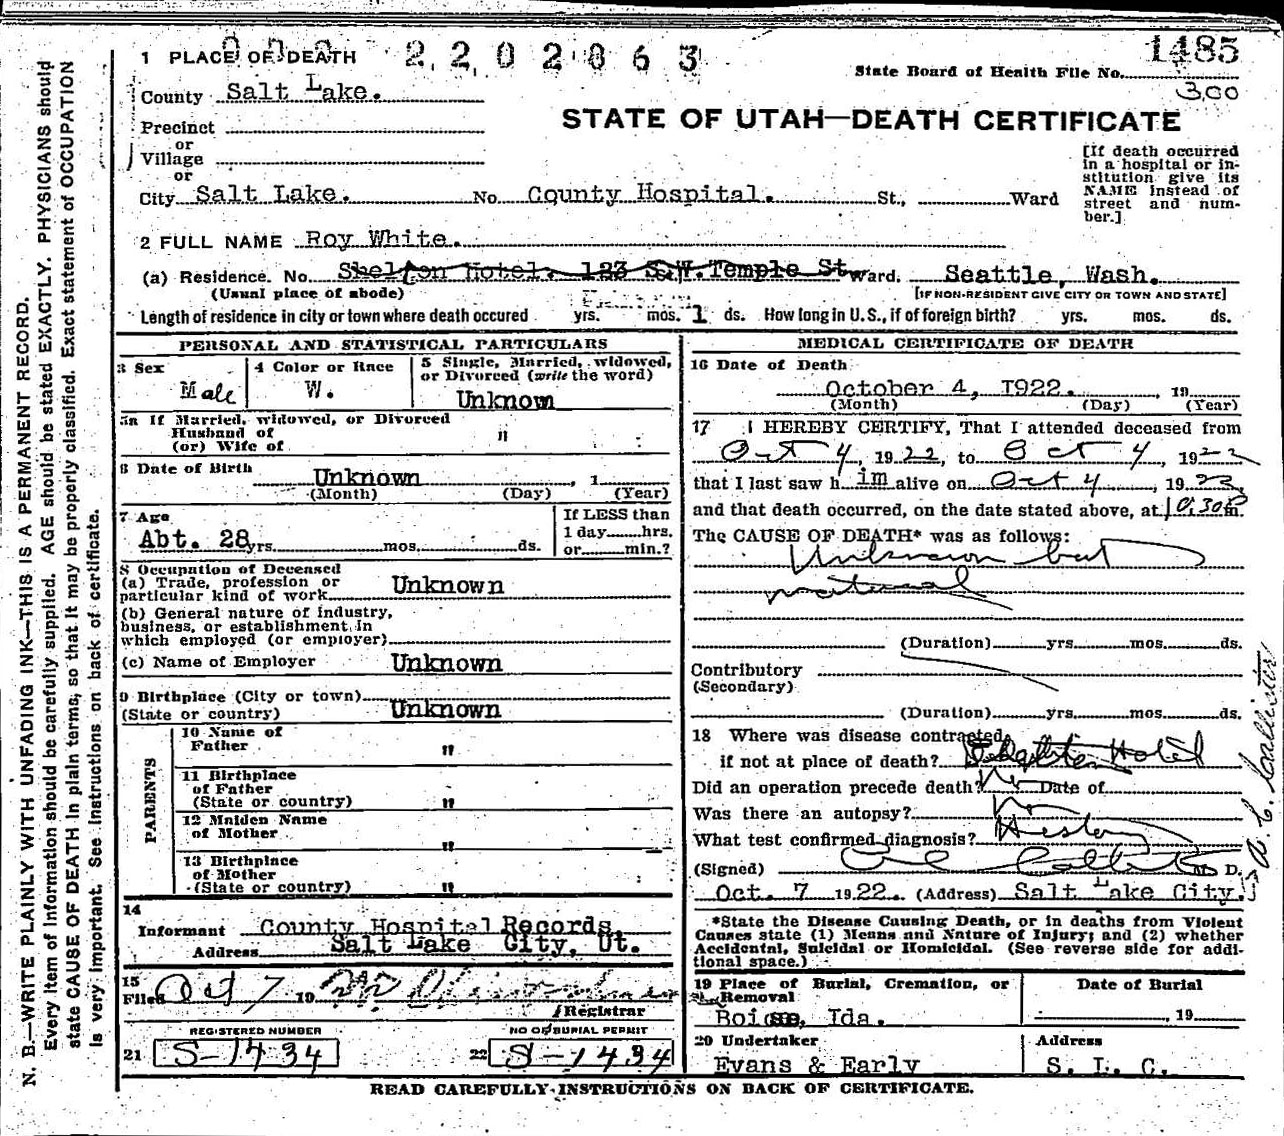 1 PLACE OF DEATH
2202863
1485
State Board of Health File No.
300
County Salt Lake.
STATE OF UTAH—DEATH CERTIFICATE
Precinct
or
Village
or
City Salt Lake. No. County Hospital. St., Ward
[If death occurred
in a hospital or in-
stitution give its
NAME instead of
street and num-
ber.]
2 FULL NAME Roy White.
(a) Residence. No. Shelton Hotel. 123 S.W. Temple St Ward. Seattle, Wash.
(Usual place of abode) [IF NON-RESIDENT GIVE CITY OR TOWN AND STATE]
Length of residence in city or town where death occured yrs. mos. 1 ds. How long in U.S., if of foreign birth? yrs. mos. ds.
PERSONAL AND STATISTICAL PARTICULARS
3 Sex
Male
4 Color or Race
W.
5 Single, Married, widowed,
or Divorced (write the word)
Unknown
5a If Married, widowed, or Divorced
Husband of
(or) Wife of "
6 Date of Birth Unknown , 1
(Month) (Day) (Year)
7 Age
Abt. 28 yrs. mos. ds.
If LESS than
1 day hrs.
or min.?
8 Occupation of Deceased
(a) Trade, profession or
particular kind of work Unknown
(b) General nature of industry,
business, or establishment in
which employed (or employer)
(c) Name of Employer Unknown
9 Birthplace (City or town)
(State or country) Unknown
PARENTS
10 Name of
Father "
11 Birthplace
of Father
(State or country) "
12 Maiden Name
of Mother "
13 Birthplace
of Mother
(State or country) "
14
Informant County Hospital Records,
Address Salt Lake City, Ut.
15
Filed Oct 7 19
Registrar
REGISTERED NUMBER
21 S-1434
NO OF BURIAL PERMIT
22 S-1434
MEDICAL CERTIFICATE OF DEATH
16 Date of Death
October 4, 1922. 19
(Month) (Day) (Year)
17 I HEREBY CERTIFY, That I attended deceased from
Oct 4, 1922, to Oct 4, 1922
that I last saw him alive on Oct 4, 1922,
and that death occurred, on the date stated above, at 10.30 p m.
The CAUSE OF DEATH* was as follows:
Unknown but
natural
(Duration) yrs. mos. ds.
Contributory
(Secondary)
(Duration) yrs. mos. ds.
18 Where was disease contracted
if not at place of death? Shelton Hotel
Did an operation precede death? No Date of
Was there an autopsy? No
What test confirmed diagnosis? History
(Signed) M. D.
Oct. 7 1922. (Address) Salt Lake City.
*State the Disease Causing Death, or in deaths from Violent
Causes state (1) Means and Nature of Injury; and (2) whether
Accidental, Suicidal or Homicidal. (See reverse side for addi-
tional space.)
19 Place of Burial, Cremation, or
Removal
Boise, Ida.
Date of Burial
, 19
20 Undertaker
Evans & Early
Address
S. L. C.
READ CAREFULLY INSTRUCTIONS ON BACK OF CERTIFICATE.
N. B.—WRITE PLAINLY WITH UNFADING INK—THIS IS A PERMANENT RECORD.
Every item of information should be carefully supplied. AGE should be stated EXACTLY. PHYSICIANS should
state CAUSE OF DEATH in plain terms, so that it may be properly classified. Exact statement of OCCUPATION
is very important. See instructions on back of certificate.